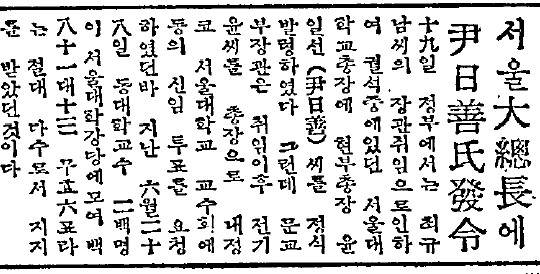 서울大總長에
尹日善氏發令
十九일 정부에서는 최규
남씨의 장관취임으로인하
여 궐석중에있던 서울대
학교총장에 현부총장 윤
일선(尹日善)씨를 정식
발령하였다 그런데 문교
부장관은 취임이후 전기
윤씨를 총장으로 내정
코 서울대학교 교수회에
동의 신임 투표를 요청
하였던바 지난 六월二十
八일 동대학교수 二백명
이 서울대학강당에모여 백
八十一대十三 무효六표라
는 절대 다수로서 지지
를 받았던것이다